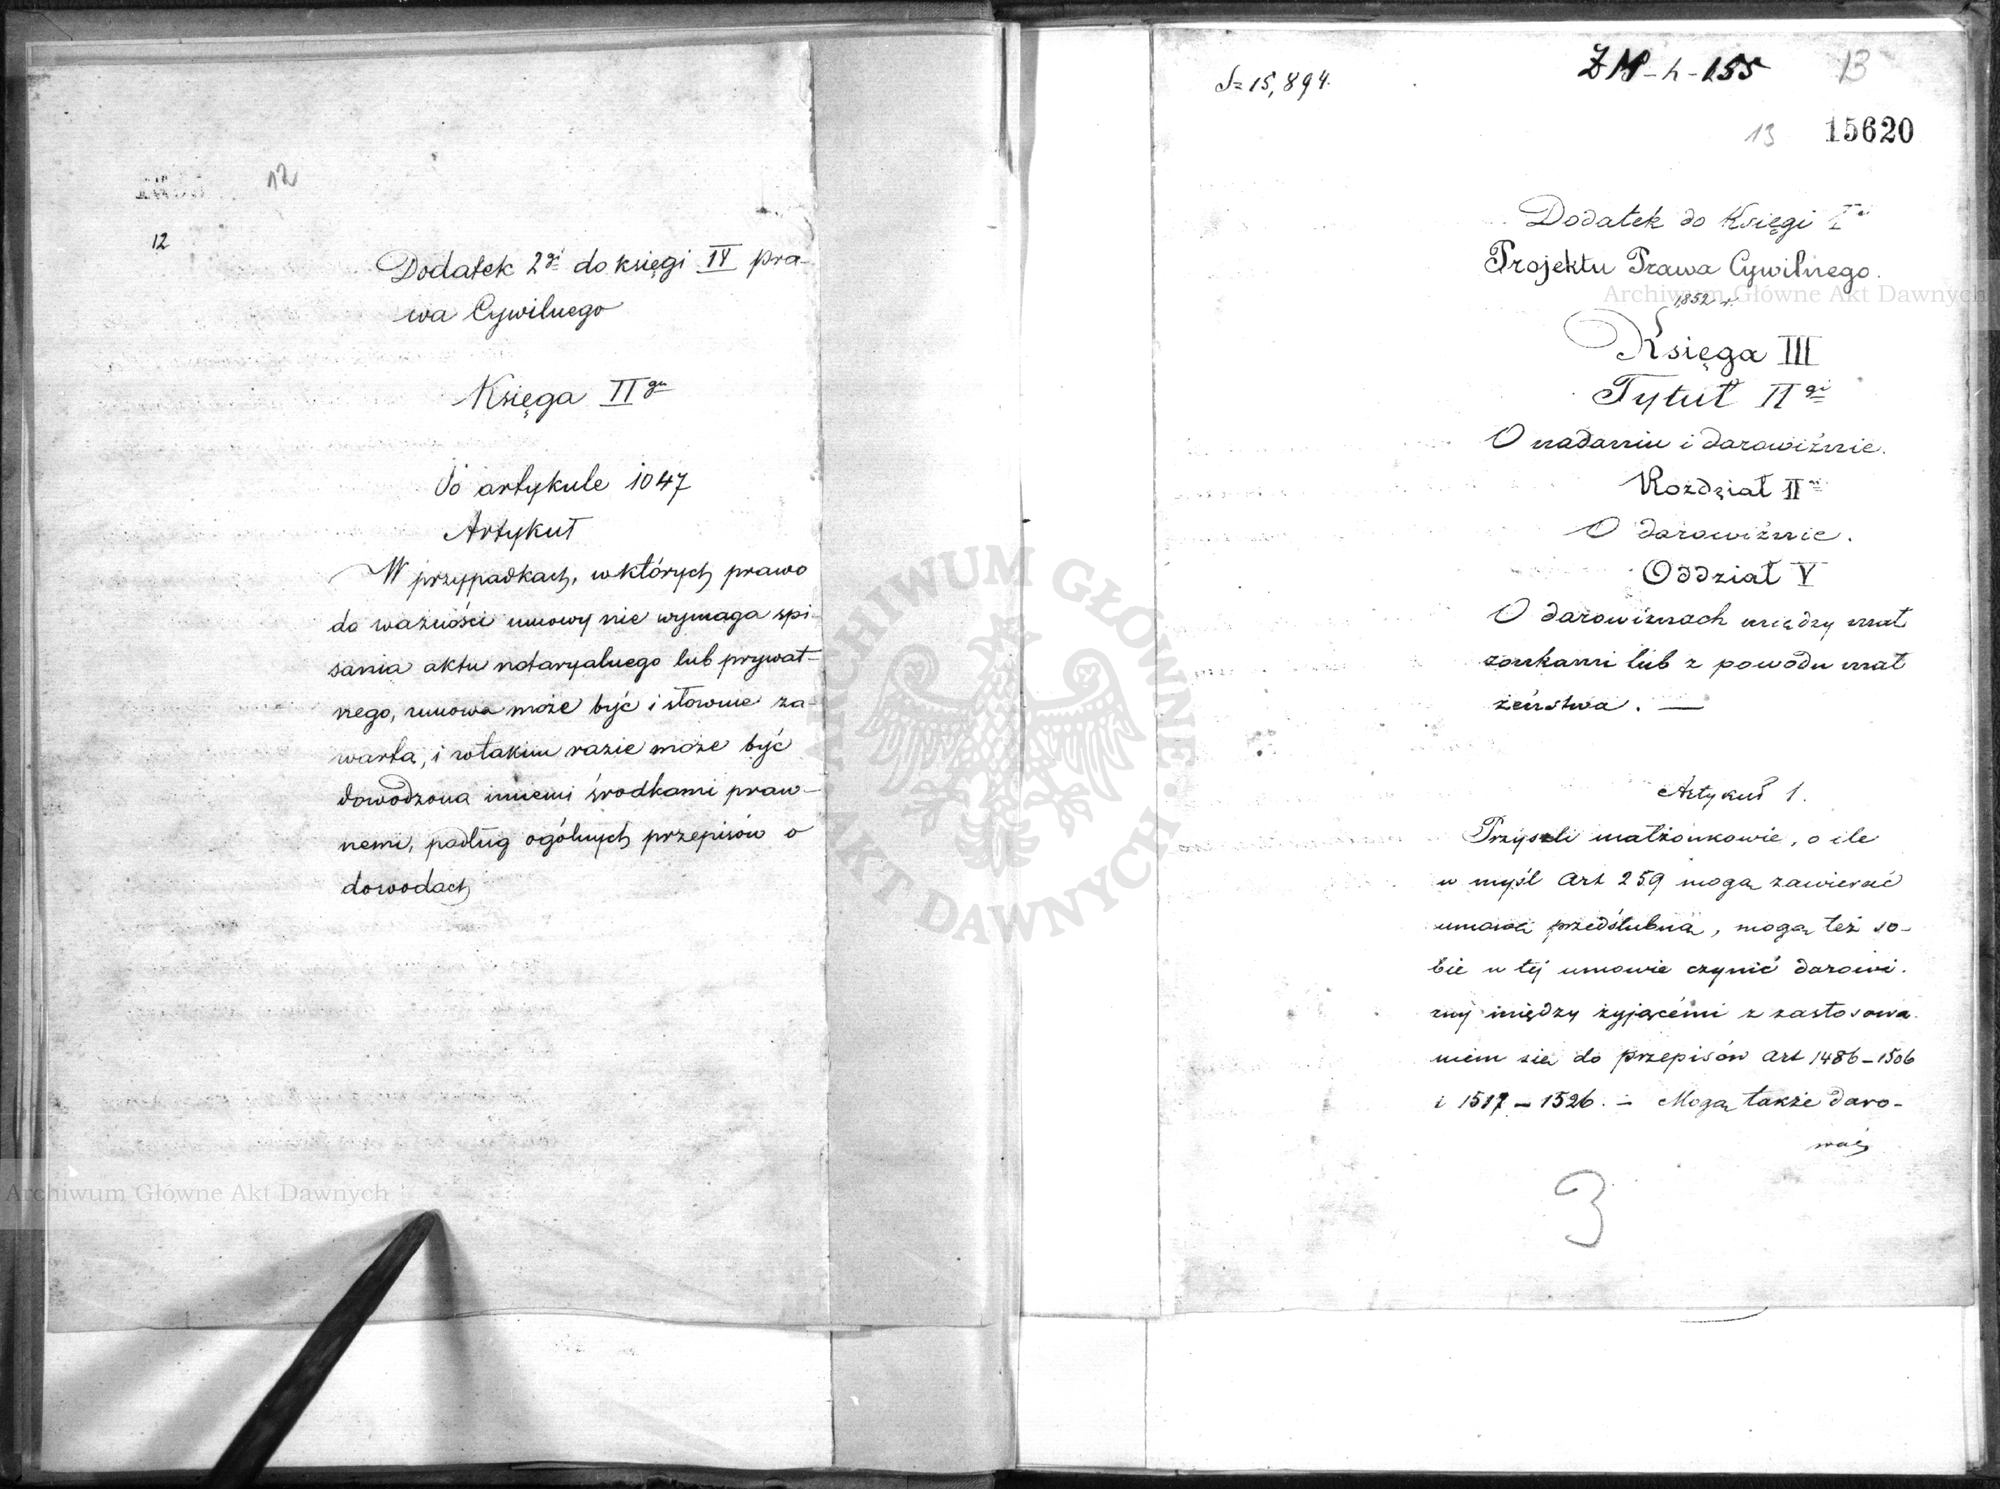 12
12
Dodatek 2gi do księgi IV pra-
wa Cywilnego
Księga IIga
Po artykule 1047
Artykuł
W przypadkach, w których prawo
do ważności umowy nie wymaga spi-
sania aktu notaryalnego lub prywat-
nego, umowa może być i słownie za-
warta, i w takim razie może być
dowodzona innemi środkami praw-
nemi, podług ogólnych przepisów o
dowodach
Archiwum Główne Akt Dawnych
ARCHIWUM GŁÓWNE AKT DAWNYCH
15,894.
ZM-h-155
13
13
15620
Dodatek do Księgi
Projektu Prawa Cywilnego.
1852 r.
Archiwum Główne Akt Dawnych
Księga III
Tytuł IIgi
O nadaniu i darowiźnie.
Rozdział II
O darowiźnie.
Oddział V
O darowiznach między mał
żonkami lub z powodu mał
żeństwa. —
Artykuł 1.
Przyszli małżonkowie, o ile
w myśl Art 259 mogą zawierać
umowę przedślubną, mogą też so-
bie w tej umowie czynić darowi-
zny między żyjącemi z zastosowa
niem się do przepisów Art 1486-1506
i 1517-1526. - Mogą także daro-
wać
3